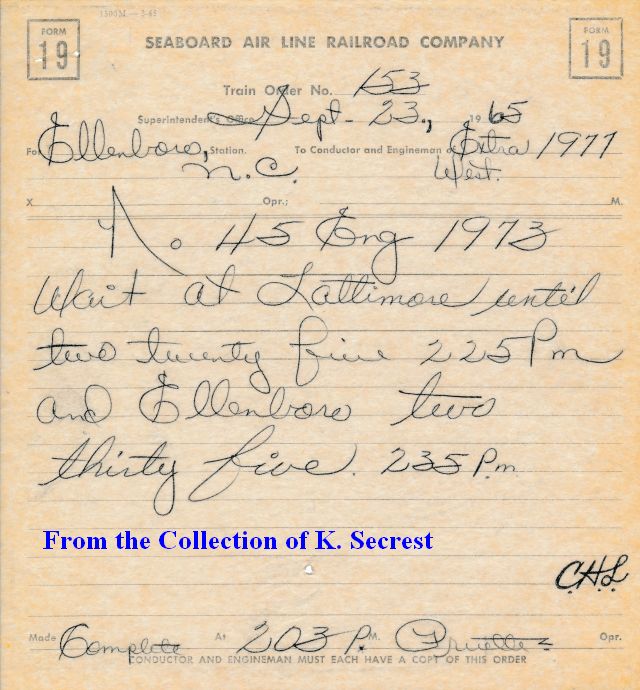 1500M — 3-65
FORM 19
SEABOARD AIR LINE RAILROAD COMPANY
FORM 19
Train Order No. 153
Superintendent's Office Sept- 23, 1965
For Ellenboro, N.C. Station. To Conductor and Engineman of Extra 1977 West.
X Opr.; M.
No 45 Eng 1973
Wait at Lattimore until
two twenty five 225 Pm
and Ellenboro two
thirty five. 235 P.m
From the Collection of K. Secrest
C.H.L
Made Complete At 203 P. M. Opr.
CONDUCTOR AND ENGINEMAN MUST EACH HAVE A COPY OF THIS ORDER